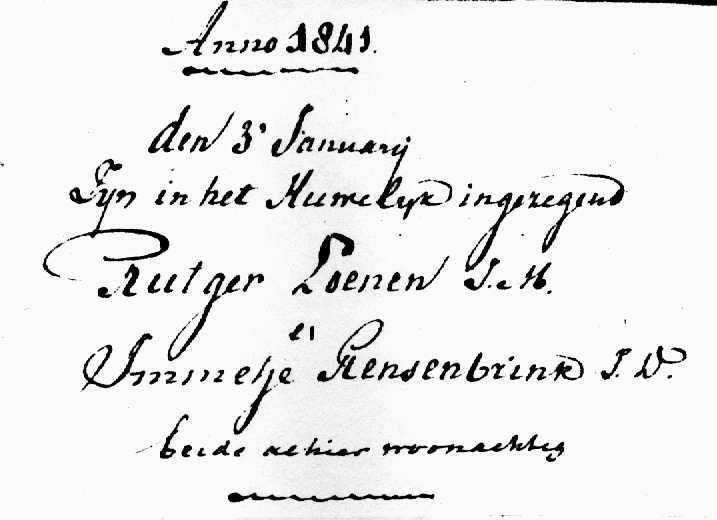 Anno 1841.
den 3e January
Zyn in het Huwelyk ingezegend
Rutger Loenen J. M.
en
Immetje Rensenbrink J. D.
beide alhier woonachtig